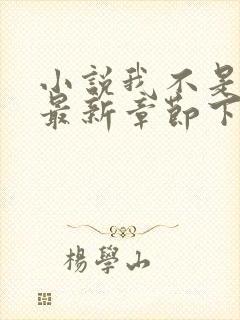 小説我不是
最新章節下
楊學山